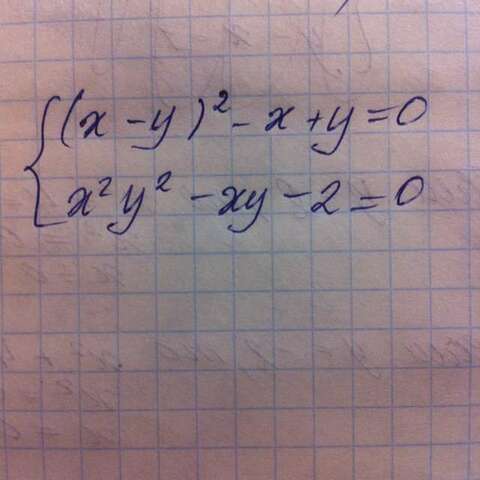 (x-y)²-x+y=0
x²y²-xy-2=0